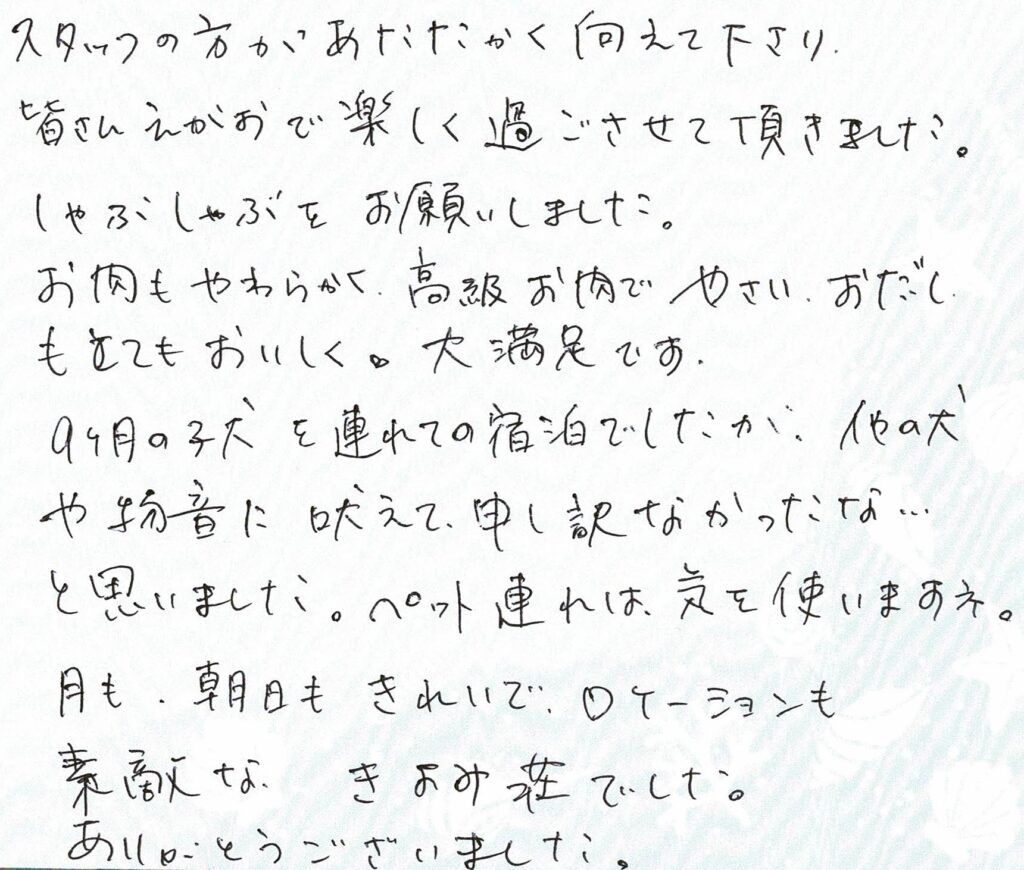 スタッフの方があたたかく向えて下さり、
皆さんえがおで楽しく過ごさせて頂きました。
しゃぶしゃぶをお願いしました。
お肉もやわらかく、高級お肉でやさい、おだし
もとてもおいしく。大満足です。
9ヶ月の子犬を連れての宿泊でしたが、他の犬
や物音に吠えて、申し訳なかったな…
と思いました。ペット連れは、気を使いますネ。
月も、朝日もきれいで、ロケーションも
素敵な きよみ荘でした。
ありがとうございました。